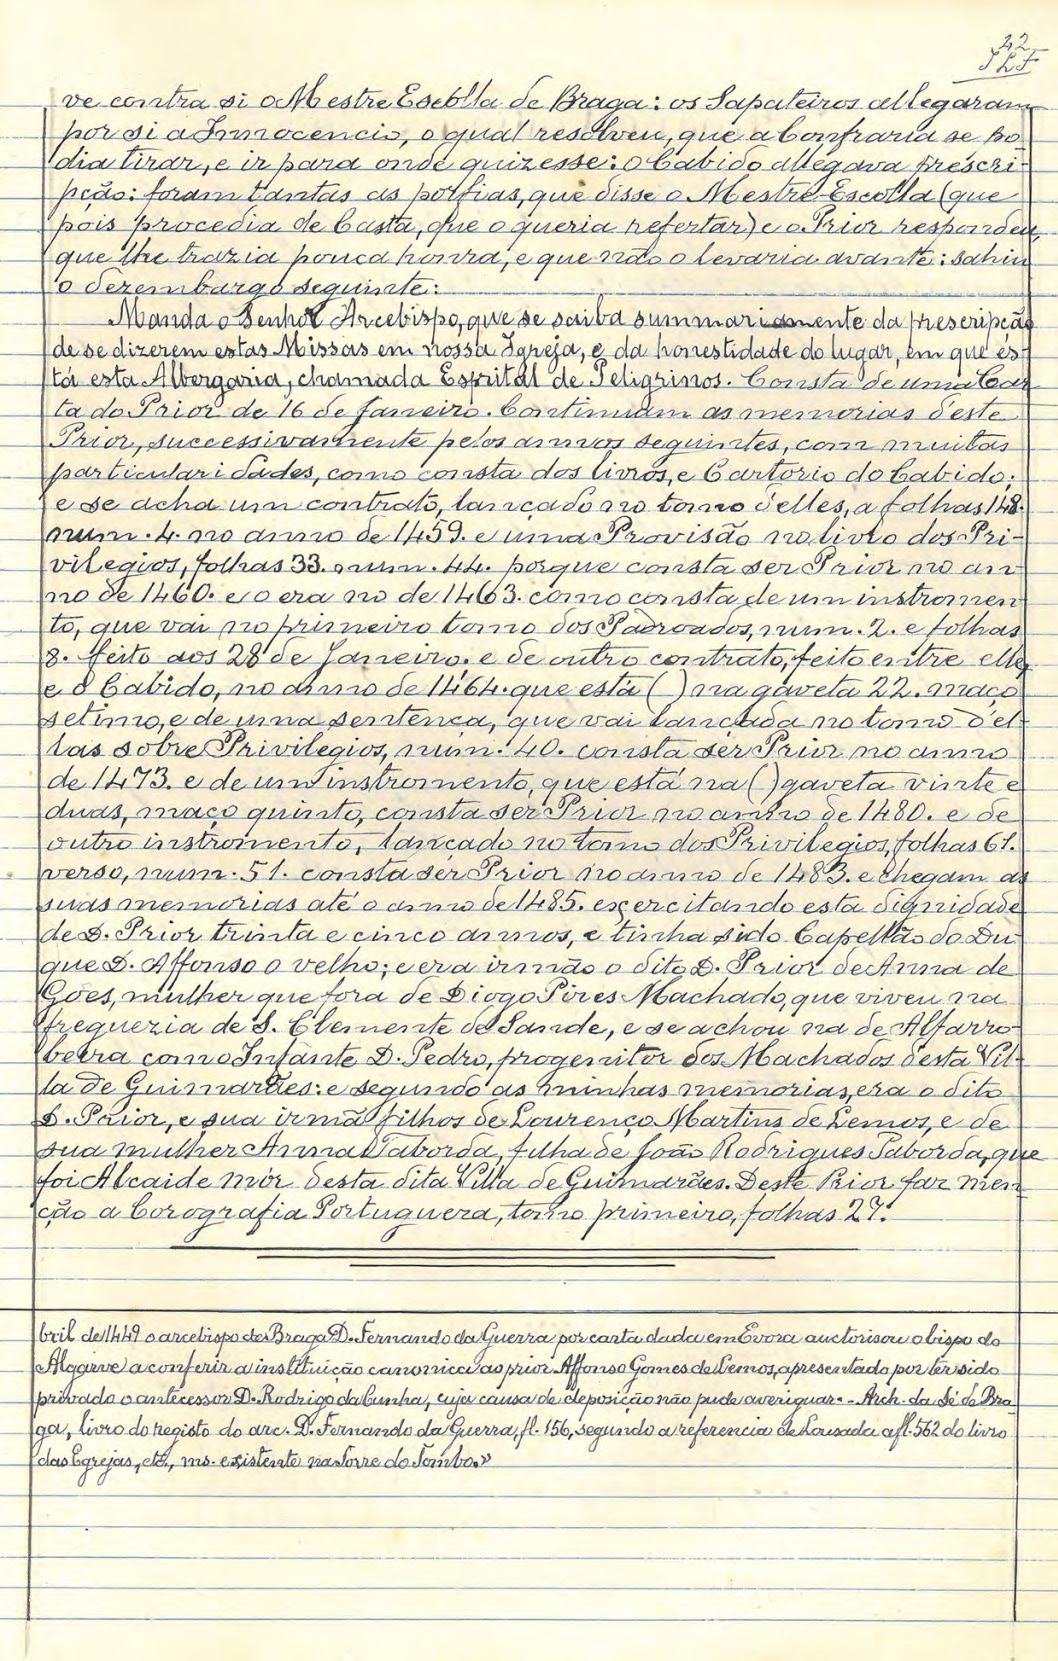 22
ve contra si o Mestre Escolla de Braga: os Sapateiros allegaram
por si a Innocencio, o qual resolveu, que a Confraria se po
dia tirar, e ir para onde quizesse: o Cabido allegava prescri-
pção: foram tantas as porfias, que disse o Mestre-Escolla (que
pois procedia de Casta, que o queria refertar) e o Prior respondeu,
que lhe trazia pouca honra, e que não o levaria avante: sahiu
o dezembargo seguinte:
Manda o Senhor Arcebispo, que se saiba summariamente da prescripção
de se dizerem estas Missas em nossa Igreja, e da honestidade do lugar, em que es-
tá esta Albergaria, chamada Esprital de Peligrinos. Consta de uma Car
ta do Prior de 16 de Janeiro. Continuam as memorias d'este
Prior, successivamente pelos annos seguintes, com muitas
particularidades, como consta dos livros, e Cartorio do Cabido;
e se acha um contrato, lançado no tomo d'elles, a folhas 148.
num. 4. no anno de 1459. e uma Provisão no livro dos Pri-
vilegios, folhas 33. num. 44. porque consta ser Prior no an-
no de 1460. e o era no de 1463. como consta de um instromen
to, que vai no primeiro tomo dos Padroados, num. 2. e folhas
8. feito aos 28 de Janeiro. e de outro contrato, feito entre elle,
e o Cabido, no anno de 1464. que está ( ) na gaveta 22. maço
setimo, e de uma sentença, que vai lançada no tomo d'el-
las sobre Privilegios, num. 40. consta ser Prior no anno
de 1473. e de um instromento, que está na ( ) gaveta vinte e
duas, maço quinto, consta ser Prior no anno de 1480. e de
outro instromento, lançado no tomo dos Privilegios, folhas 61.
verso, num. 51. consta ser Prior no anno de 1483. e chegam as
suas memorias até o anno de 1485. exercitando esta dignidade
de D. Prior trinta e cinco annos, e tinha sido Capellão do Du
que D. Affonso o velho; e era irmão o dito D. Prior de Anna de
Goes, mulher que fora de Diogo Pires Machado, que viveu na
freguezia de S. Clemente de Sande, e se achou na de Alfarro-
beira com o Infante D. Pedro, progenitor dos Machados d'esta Vil-
la de Guimarães: e segundo as minhas memorias, era o dito
D. Prior, e sua irmã filhos de Lourenço Martins de Lemos, e de
sua mulher Anna Taborda, filha de João Rodrigues Taborda, que
foi Alcaide mór desta dita Villa de Guimarães. Deste Prior faz men
ção a Corografia Portugueza, tomo primeiro, folhas 27.
bril de 1449 o arcebispo de Braga D. Fernando da Guerra por carta dada em Evora auctorisou o bispo do
Algarve a conferir a instituição canonica ao prior Affonso Gomes de Lemos, apresentado por ter sido
privado o antecessor D. Rodrigo da Cunha, cuja causa de deposição não pude averiguar. - Arch. da Sé de Bra-
ga, livro do registo do arc. D. Fernando da Guerra, fl. 156, segundo a referencia de Lousada a fl. 562 do livro
das Egrejas, etc., ms. existente na Torre do Tombo.»